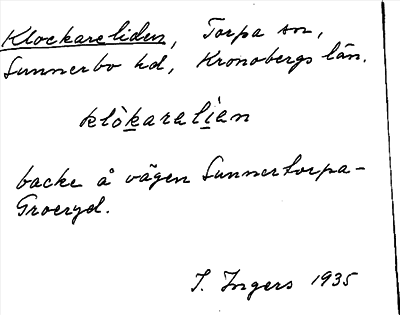 Klockareliden, Torpa sn,
Sunnerbo hd, Kronobergs län.
klòkarelíen
backe å vägen Sunnertorpa-
Groeryd.
I. Ingers 1935